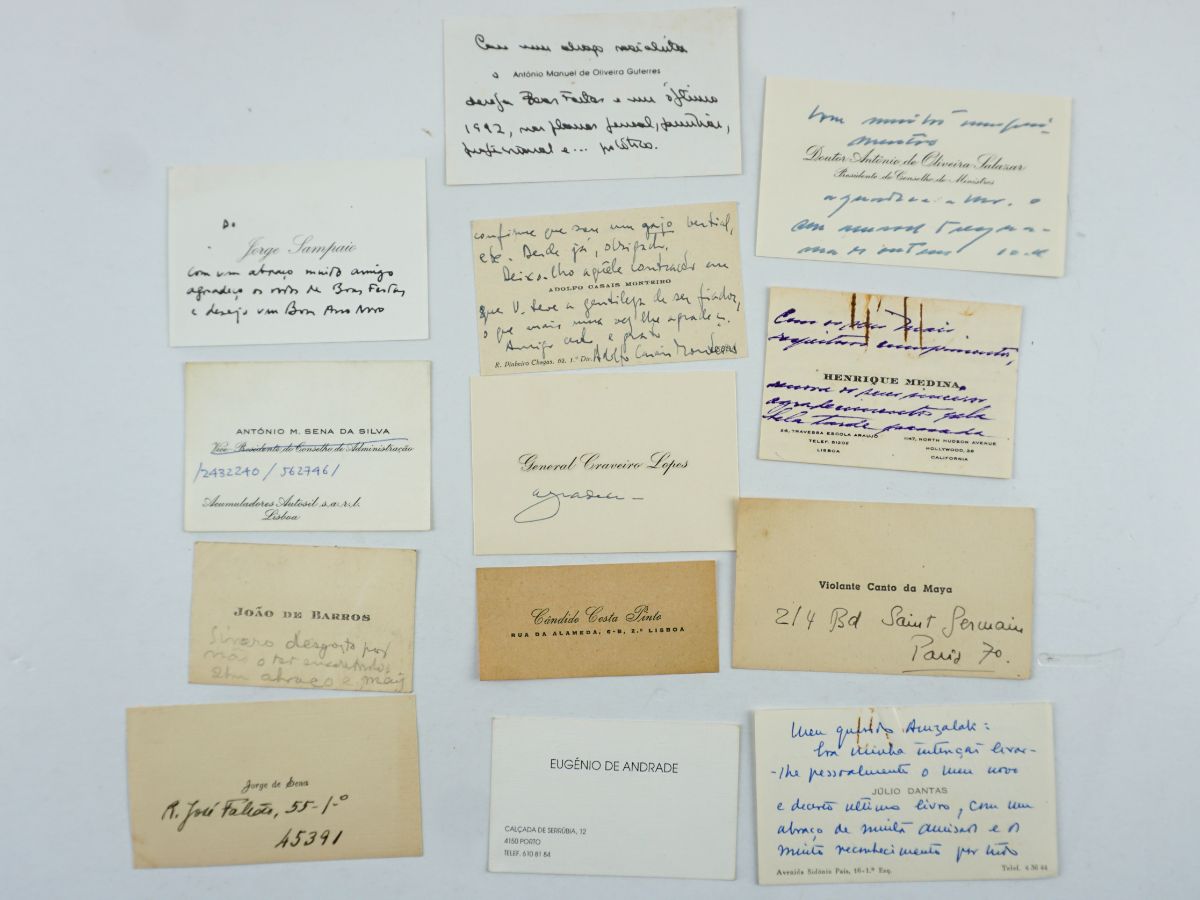 Com um abraço socialista
o António Manuel de Oliveira Guterres
deseja Boas Festas e um óptimo
1992, nos planos pessoal, familiar,
profissional e... político.
Com muitos cumpri-
mentos
Doutor António de Oliveira Salazar
Presidente do Conselho de Ministros
agradece a
Do
Jorge Sampaio
com um abraço muito amigo
agradeço os votos de Boas Festas
e desejo um Bom Ano Novo
confirme que sou um gajo vertical,
etc. Desde já, obrigado.
Deixo-lho aquêle contrador em
ADOLFO CASAIS MONTEIRO
que V. teve a gentileza de ser fiador,
o que mais uma vez lhe agradeço.
Amigo e grato
Adolfo Casais Monteiro
R. Pinheiro Chagas, 62, 1.º Dir.
Com os seus mais
respeitosos cumprimentos,
HENRIQUE MEDINA
renova os seus sinceros
agradecimentos pela
bela tarde passada
26, TRAVESSA ESCOLA ARAUJO
TELEF. 51202
LISBOA
1147, NORTH HUDSON AVENUE
HOLLYWOOD, 38
CALIFORNIA
ANTÓNIO M. SENA DA SILVA
Vice-Presidente do Conselho de Administração
/2432240 / 562746/
Acumuladores Autosil s.a.r.l.
Lisboa
General Craveiro Lopes
agradece —
Violante Canto da Maya
214 Bd Saint Germain
Paris 7o.
JOÃO DE BARROS
Sincero desgosto por
não o ter encontrado.
Um abraço e mais
Cândido Costa Pinto
RUA DA ALAMEDA, 6-B, 2.º LISBOA
Jorge de Sena
R. José Falcão, 55-1-º
45391
EUGÉNIO DE ANDRADE
CALÇADA DE SERRÚBIA, 12
4150 PORTO
TELEF. 610 81 84
Meu querido Amzalak:
Era minha intenção levar-
-lhe pessoalmente o meu novo
JÚLIO DANTAS
e decerto ultimo livro, com um
abraço de muita amisade e o
muito reconhecimento por tudo
Avenida Sidónio Pais, 16-1.º Esq.
Telef. 4 36 44